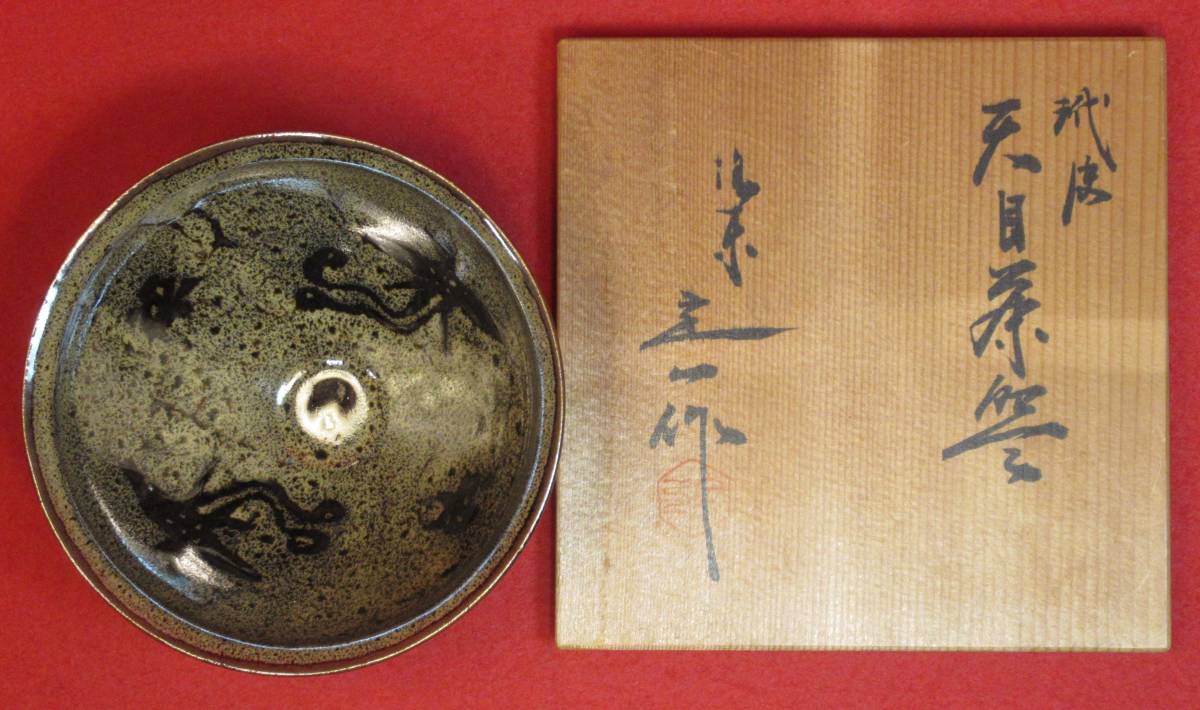 玳皮
天目茶盌
洛東
圭一作